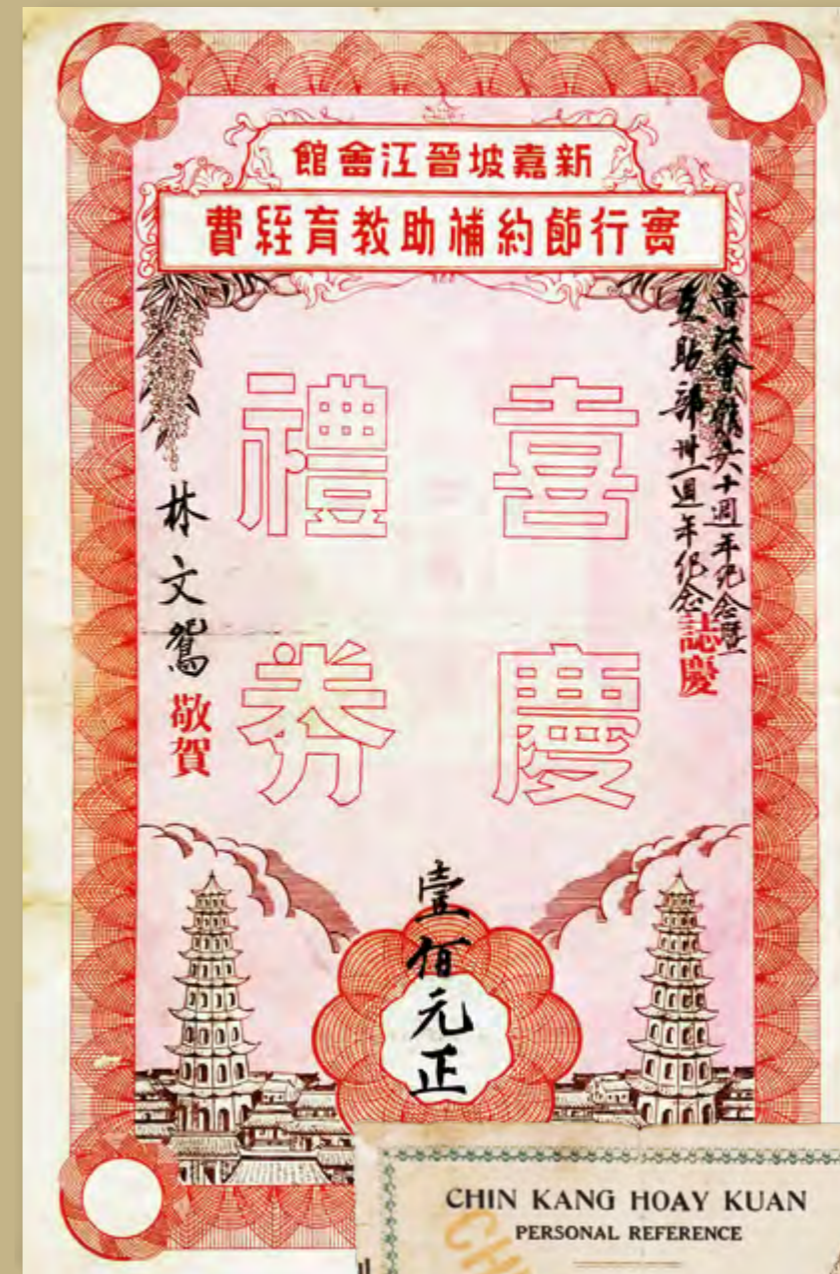 新嘉坡晉江會館
實行節約補助教育經費
晋江會館六十週年紀念暨
互助部卅一週年紀念誌慶
喜慶
禮券
林文鴛敬賀
壹佰元正
CHIN KANG HOAY KUAN
PERSONAL REFERENCE